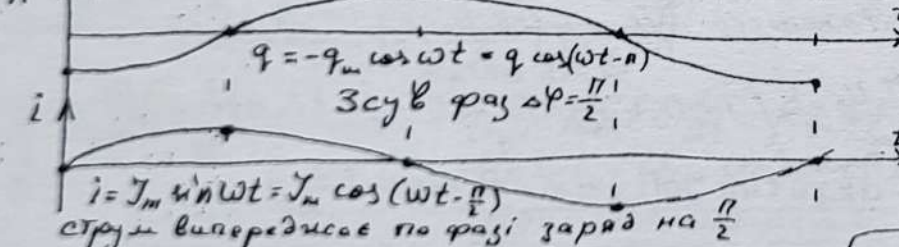 q = -qₘ cos ωt = q cos(ωt-π)
Зсув фаз Δφ = π/2
i
i = Jₘ sin ωt = Jₘ cos (ωt - π/2)
струм випереджає по фазі заряд на π/2